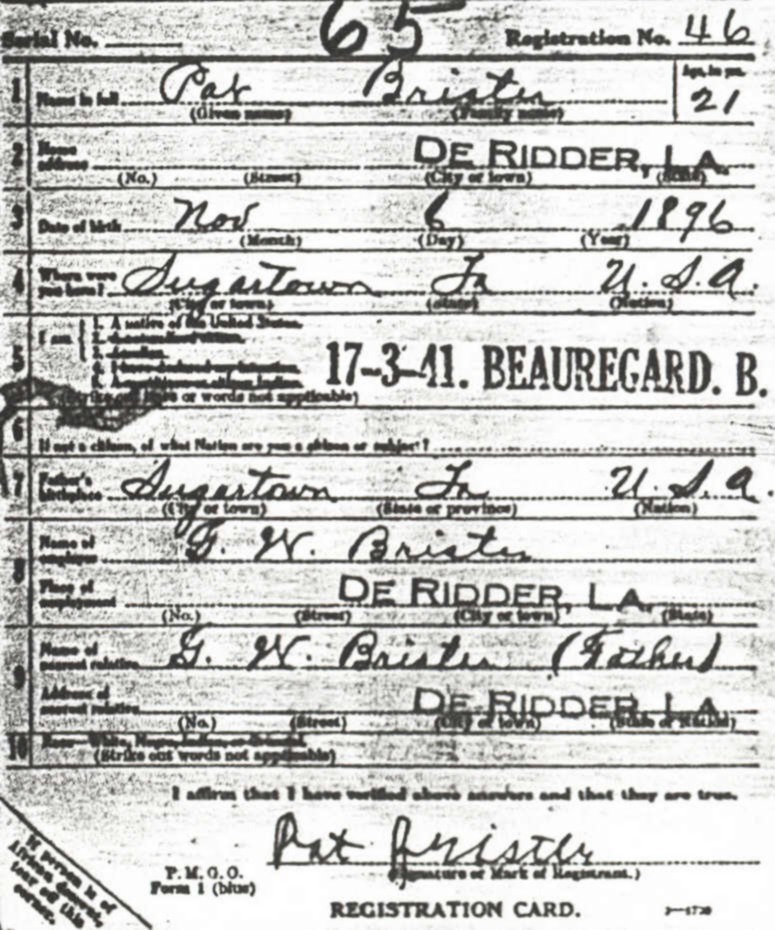 65
Serial No. Registration No. 46
1 Name in full Pat Brister Age, in yrs. 21
(Given name) (Family name)
2 Home address DE RIDDER, LA.
(No.) (Street) (City or town) (State)
3 Date of birth Nov 6 1896
(Month) (Day) (Year)
4 Where were you born? Sugartown La U. S. A.
(City or town) (State) (Nation)
5 I am 1. A native of the United States.
17-3-41. BEAUREGARD. B.
(Strike out lines or words not applicable)
6 If not a citizen, of what Nation are you a citizen or subject?
7 Father's birthplace Sugartown La U. S. A.
(City or town) (State or province) (Nation)
8 Name of employer G. W. Brister
Place of employment DE RIDDER, LA.
(No.) (Street) (City or town) (State)
9 Name of nearest relative G. W. Brister (Father)
Address of nearest relative DE RIDDER, LA
(No.) (Street) (City or town) (State or Nation)
10 Race White,
(Strike out words not applicable)
I affirm that I have verified above answers and that they are true.
Pat Brister
(Signature or Mark of Registrant.)
P. M. G. O.
Form 1 (blue)
If person is of
African descent,
tear off this
corner.
REGISTRATION CARD.